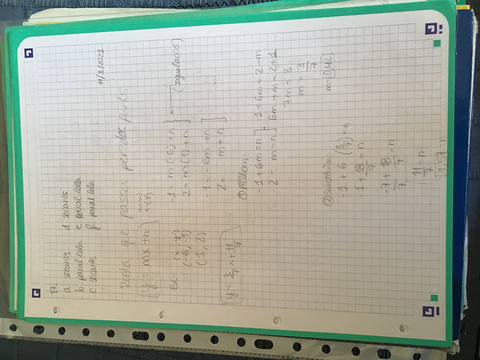 11/3/2021
57.
a secants d secants
b paral·leles e paral·leles
c secants f paral·leles
recta que passa per dos punts
y = mx + n
Ex: (x, y)
(-6, -1)
(1, 2)
-1 = m(-6) + n
2 = m(1) + n
(igualació)
-1 = -6m + n
2 = m + n
-1 + 6m = n
2 - m = n
-1 + 6m = 2 - m
6m + m = 2 + 1
7m = 3
m = 3/7
-1 + 6(3/7) = n
-1 + 18/7 = n
-7/7 + 18/7 = n
11/7 = n
y = 3/7 x + 11/7